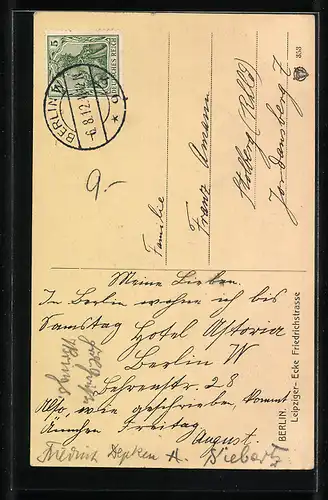 5
DEUTSCHES REICH
BERLIN
6.8.12.
9.-
353
Familie
Franz Amann
Stolberg (Rhld)
Jordansberg 7
Meine Lieben.
In Berlin wohne ich bis
Samstag Hotel Astoria
Berlin W
Behrenstr. 28
Also, wie geschrieben, kommt
Ännchen Freitag
August.
BERLIN.
Leipziger- Ecke Friedrichstrasse